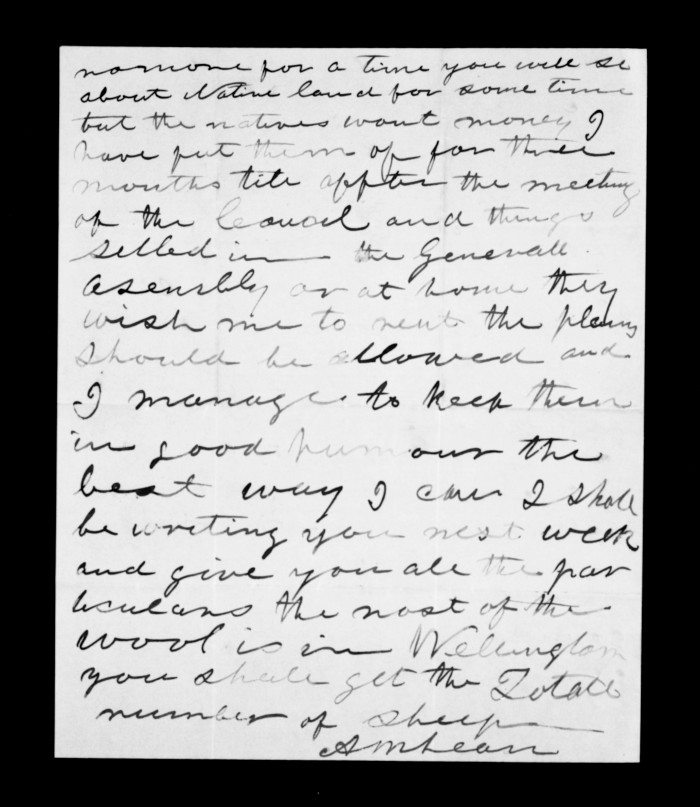 nomore for a time you will se
about Native land for some time
but the natives want money I
have put them of for three
months till affter the meeting
of the Couoel and things
selled in the Generall
Asembly or at home they
wish me to rent the plains
should be allowed and
I manage to keep them
in good humour the
best way I can I shall
be writing you next week
and give you all the par
ticulars the most of the
wool is in Wellington
you shall get the Totall
number of sheep
A McLean